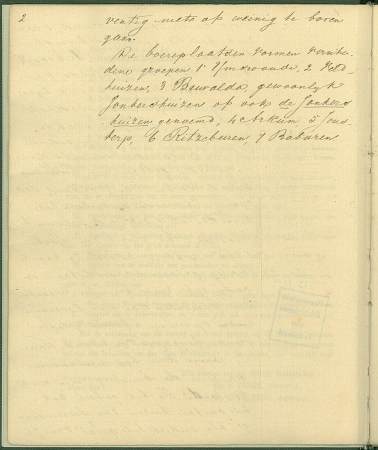 2
ventig niets of weinig te boven
gaan.
De boereplaatsen vormen verschei-
dene groepen 1° 2 Veld-
huizen, 3 gewoonlijk
Jonkershuizen of ook de Jonkers
huizen genoemd, 4 Arkum 5 Jous-
derp, 6 Ritzeburen, 7 Baburen